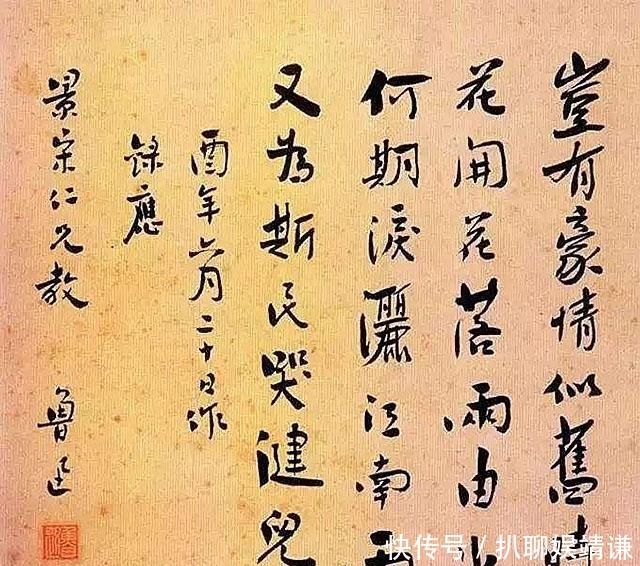 豈有豪情似舊時
花開花落兩由
何期淚灑江南雨
又為斯民哭健兒
酉年六月二十日作
錄應
景宋仁兄教
魯迅
快传号 / 扒聊娱靖谦